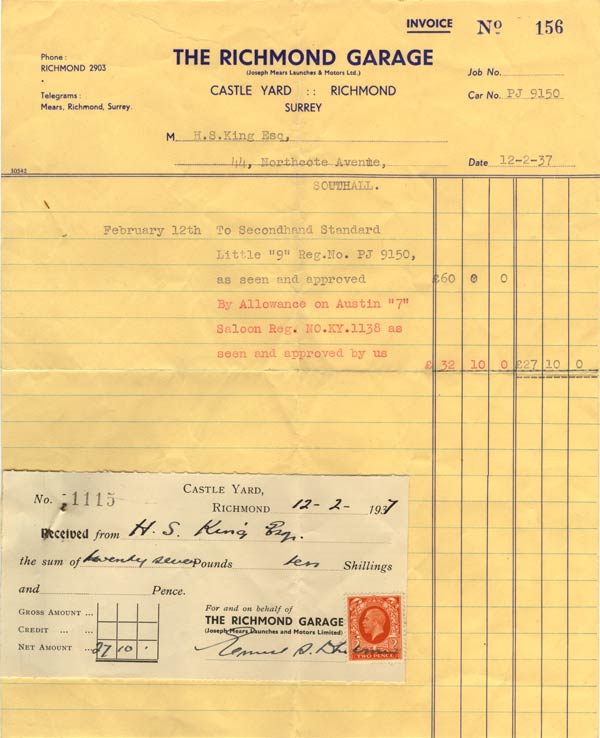 INVOICE No 156
Phone :
RICHMOND 2903
Telegrams :
Mears, Richmond, Surrey.
THE RICHMOND GARAGE
(Joseph Mears Launches & Motors Ltd.)
CASTLE YARD :: RICHMOND
SURREY
Job No.
Car No. PJ 9150
M H.S.King Esq,
44, Northcote Avenue,
SOUTHALL.
Date 12-2-37
10542
February 12th To Secondhand Standard
Little "9" Reg.No. PJ 9150,
as seen and approved £60 0 0
By Allowance on Austin "7"
Saloon Reg. NO.KY.1138 as
seen and approved by us £ 32 10 0 £27 10 0
No. 1115
CASTLE YARD,
RICHMOND 12-2-1937
Received from H. S. King Esq.
the sum of twenty seven Pounds ten Shillings
and Pence.
GROSS AMOUNT ...
CREDIT ... ...
NET AMOUNT ... 27 10 .
For and on behalf of
THE RICHMOND GARAGE
(Joseph Mears Launches and Motors Limited)
TWO PENCE